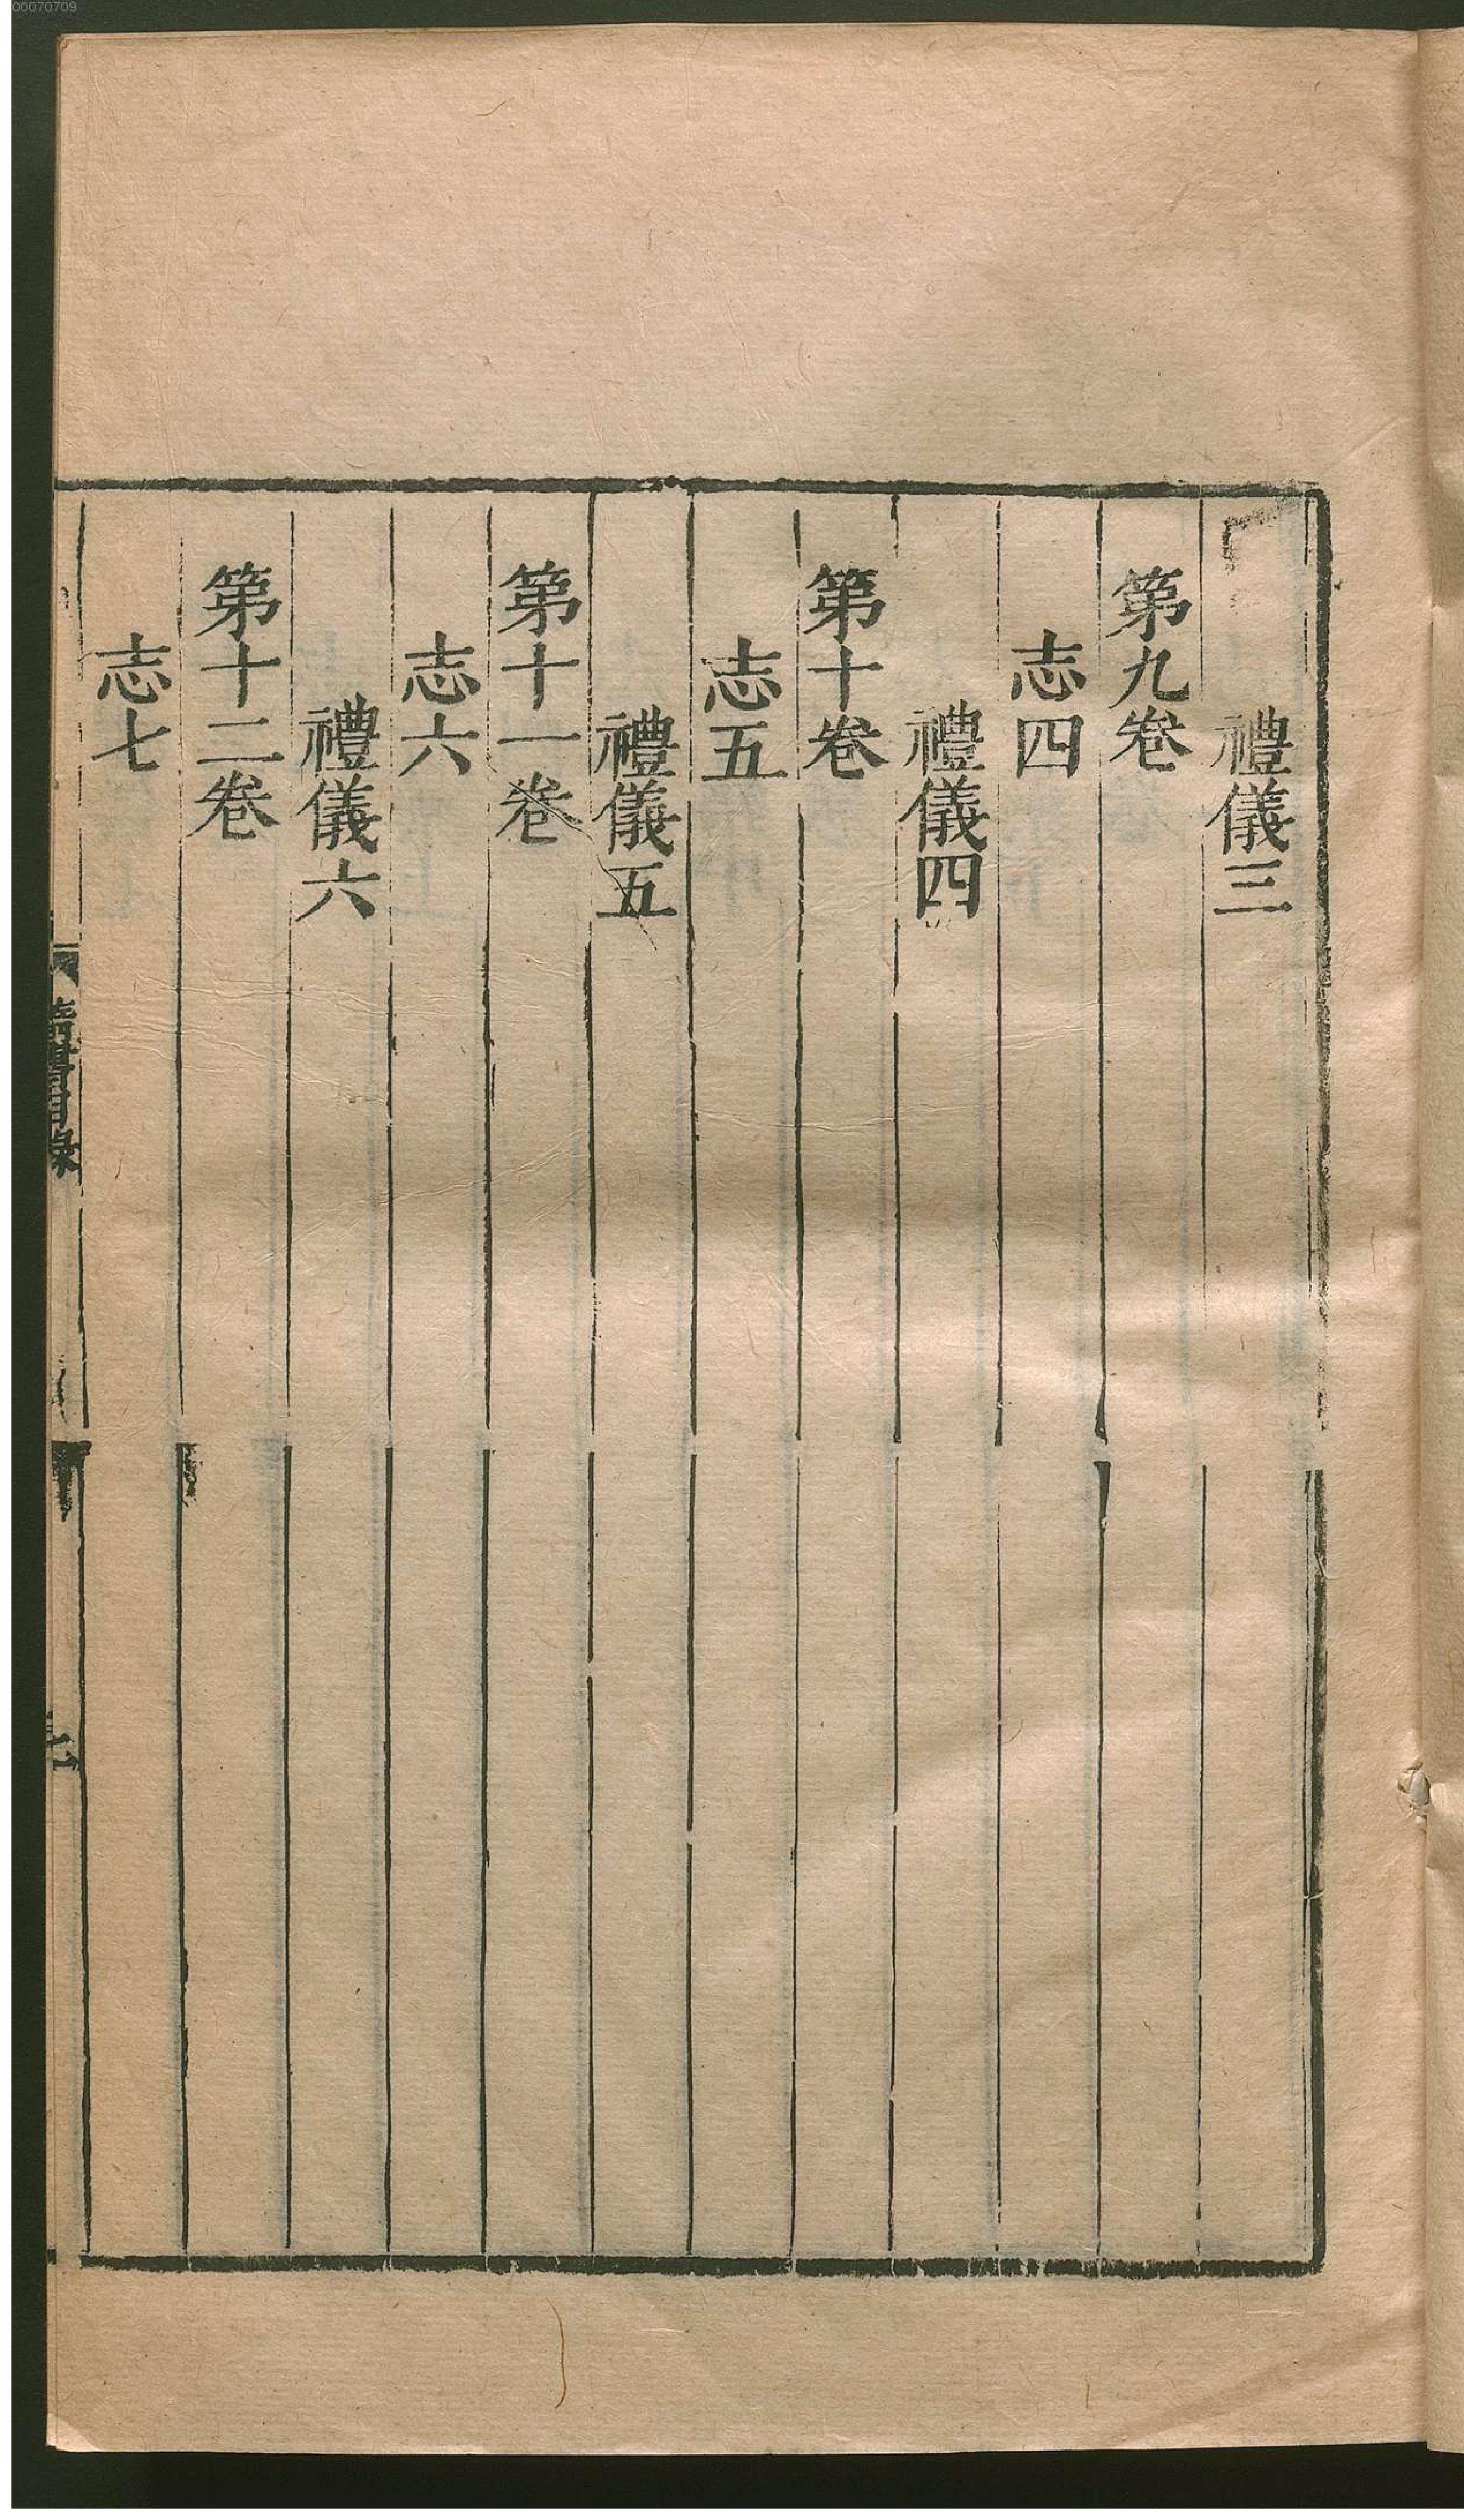 禮儀三
第九卷
志四
禮儀四
第十卷
志五
禮儀五
第十一卷
志六
禮儀六
第十二卷
志七
隋書目錄
00070709